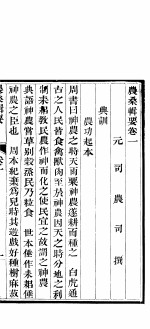 農桑輯要卷一
元司農司撰
典訓
農功起本
周書曰神農之時天雨粟神農遂耕而種之　白虎通
古之人民皆食禽獸肉至於神農因天之時分地之利
制耒耜教民農作神而化之使民宜之故謂之神農
典語神農嘗草別穀烝民乃粒食　世本倕作耒耜倕
神農之臣也　周本紀棄爲兒時其遊戲好種樹麻菽